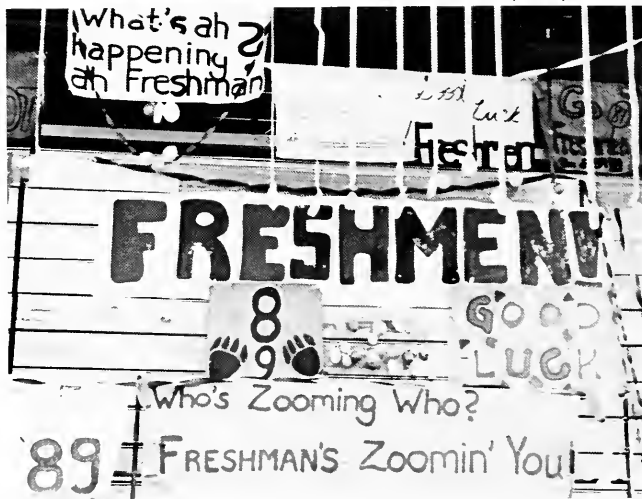 What's ah
happening
ah Freshman?
Good
Luck
Freshmen
Go
89
Freshmen
FRESHMEN!
8
9
GOOD
LUCK
Who's Zooming Who?
'89
FRESHMAN'S Zoomin' You!